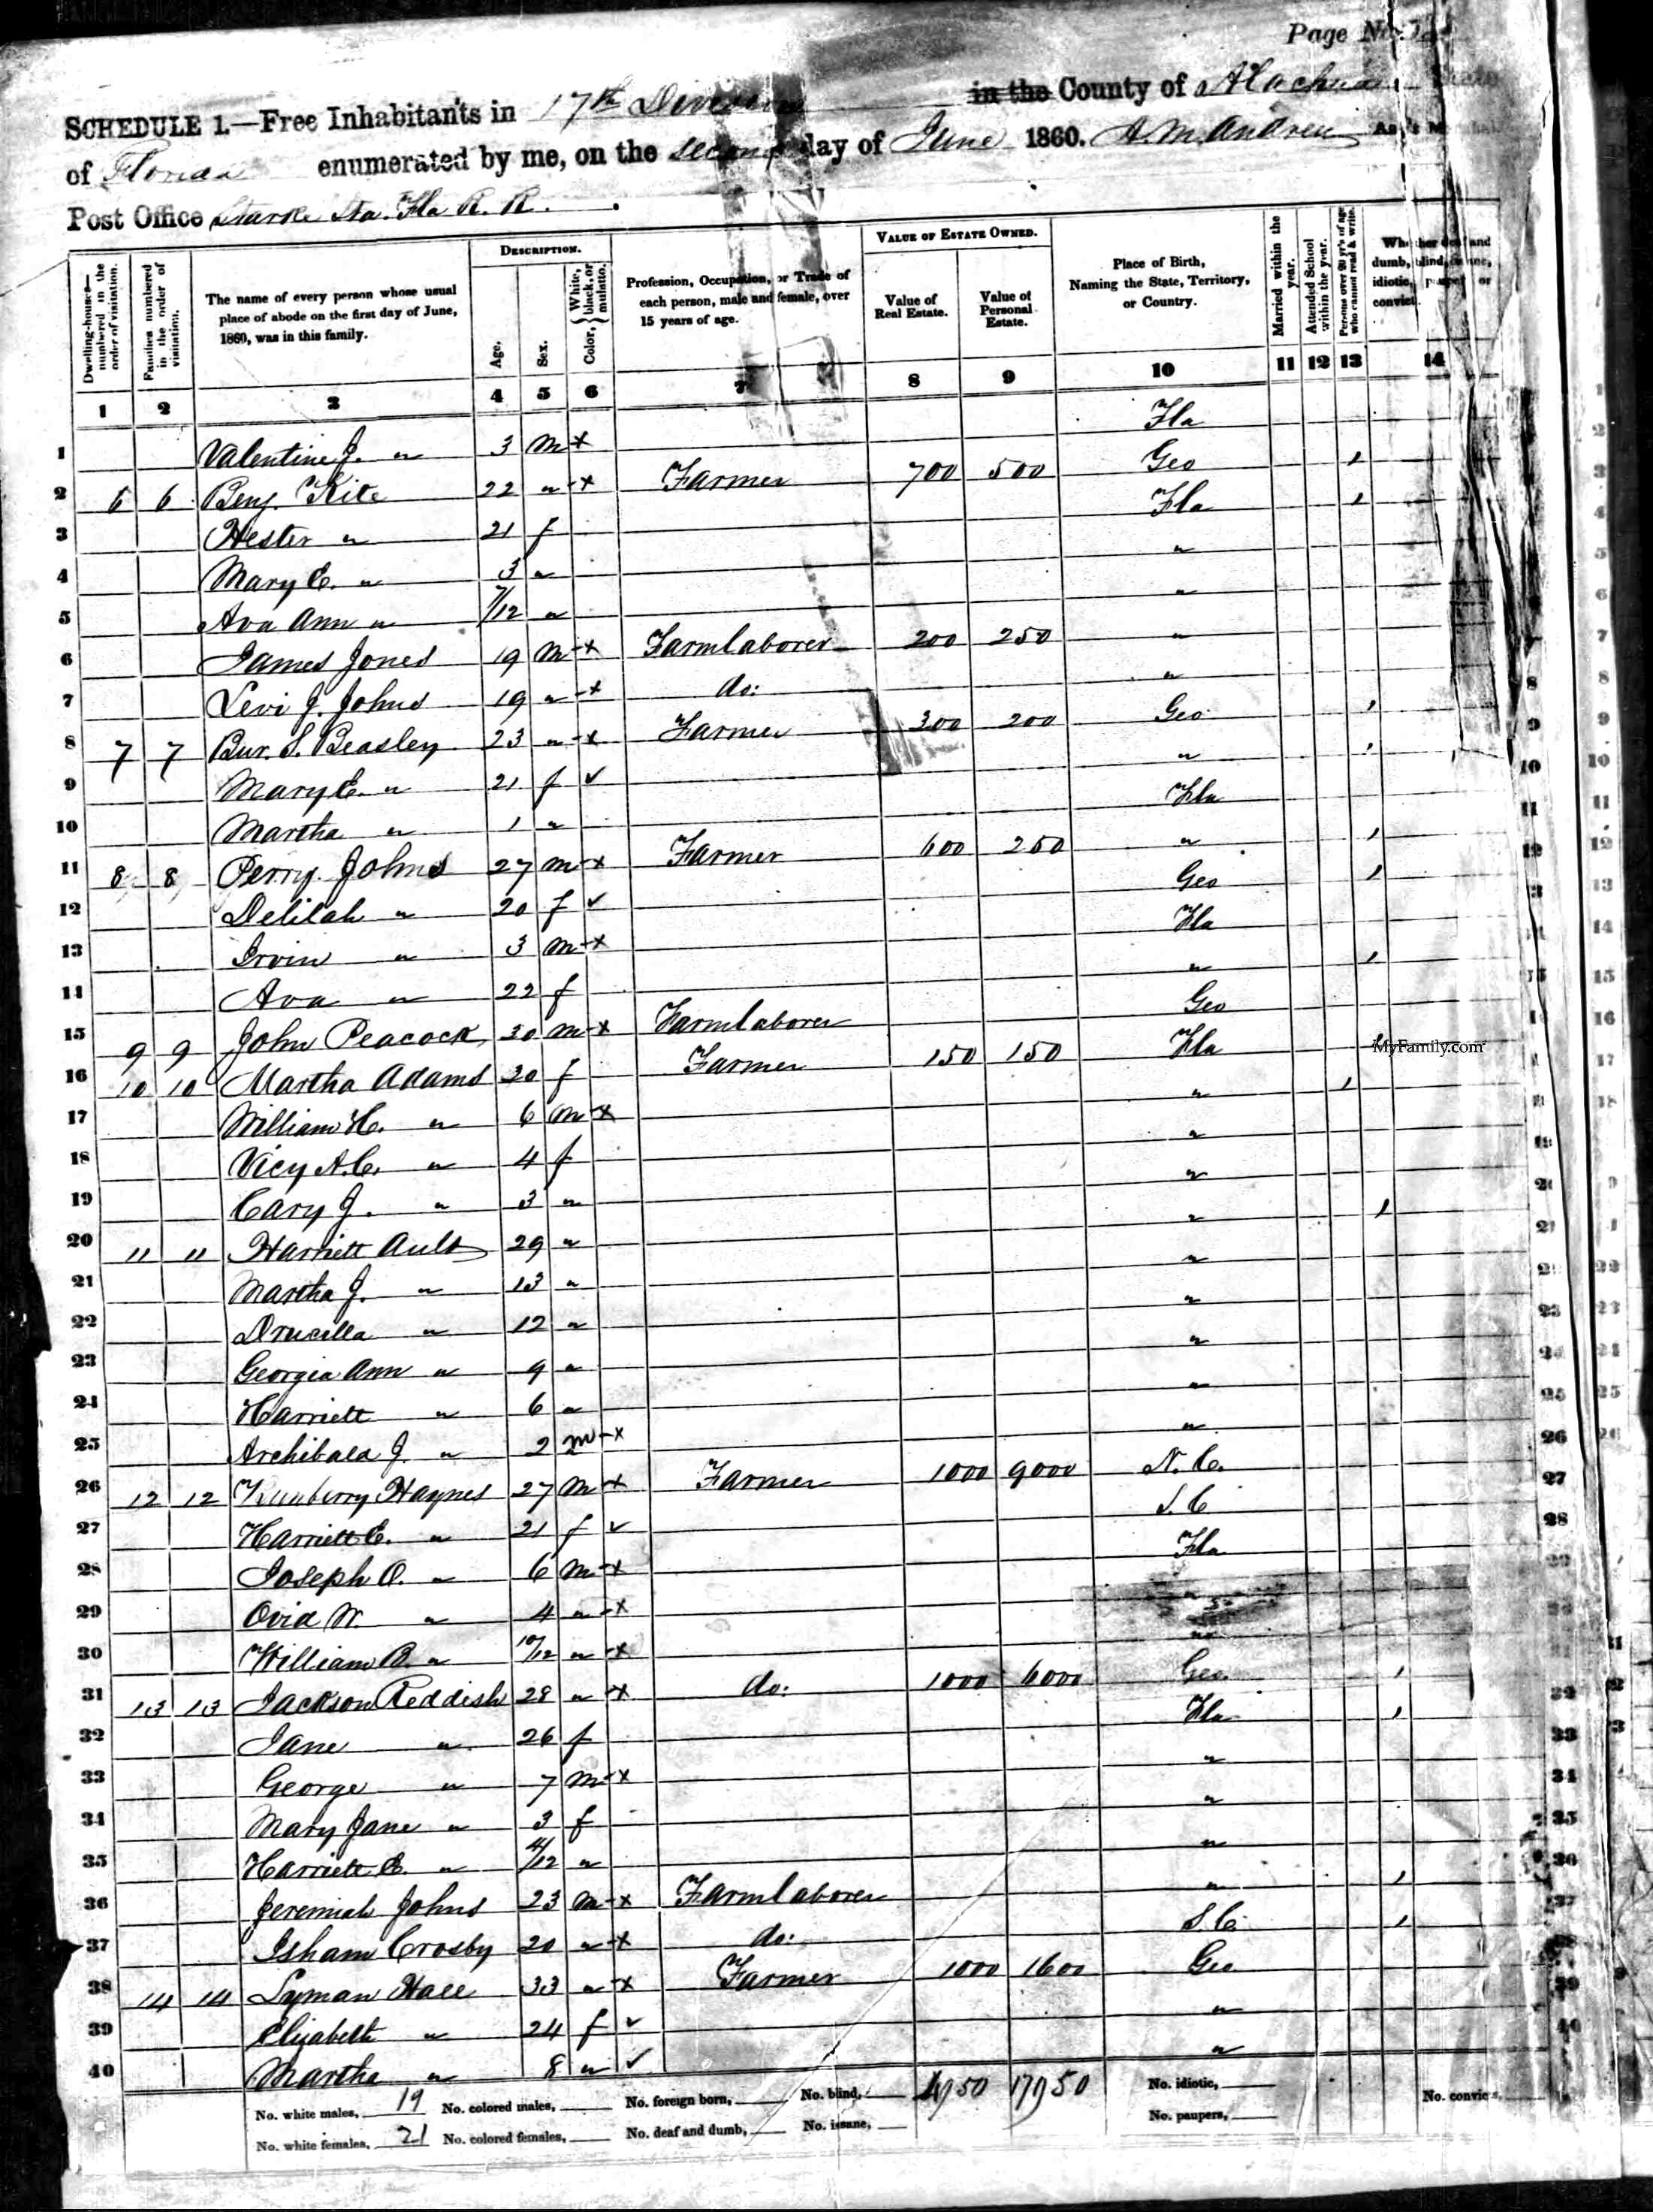 Page No.
SCHEDULE 1.—Free Inhabitants in 17th Division in the County of Alachua State
of Florida enumerated by me, on the second day of June 1860. A. M. Andreu Ass't Marshal
Post Office Starke Sta. Fla R. R.
Dwelling-houses—numbered in the order of visitation.
Families numbered in the order of visitation.
The name of every person whose usual place of abode on the first day of June, 1860, was in this family.
DESCRIPTION.
Age.
Sex.
Color, { White, black, or mulatto.
Profession, Occupation, or Trade of each person, male and female, over 15 years of age.
VALUE OF ESTATE OWNED.
Value of Real Estate.
Value of Personal Estate.
Place of Birth, Naming the State, Territory, or Country.
Married within the year.
Attended School within the year.
Persons over 20 yr's of age who cannot read & write.
Whether deaf and dumb, blind, insane, idiotic, pauper or convict.
1 2 3 4 5 6 7 8 9 10 11 12 13 14
1 Valentine J. " 3 m x Fla
2 6 6 Benj. Kite 22 " x Farmer 700 500 Geo /
3 Hester " 21 f Fla /
4 Mary E. " 3 " "
5 Ava Ann " 7/12 " "
6 James Jones 19 m x Farm laborer 200 250 "
7 Levi J. Johns 19 " x do: "
8 7 7 Bur. S. Beasley 23 " x Farmer 300 200 Geo /
9 Mary E. " 21 f ✓ " /
10 Martha " 1 " Fla
11 8 8 Perry Johns 27 m x Farmer 600 250 " /
12 Delilah " 20 f ✓ Geo /
13 Irvin " 3 m x Fla
14 Ava " 22 f " /
15 9 9 John Peacock 30 m x Farm laborer Geo
16 10 10 Martha Adams 30 f Farmer 150 150 Fla
MyFamily.com
17 William H. " 6 m x " /
18 Vicy A. C. " 4 f "
19 Cary J. " 3 " "
20 11 11 Harriett Ault 29 " " /
21 Martha J. " 13 " "
22 Drucilla " 12 " "
23 Georgia Ann " 9 " "
24 Harriett " 6 " "
25 Archibald J. " 2 m x "
26 12 12 Haynes 27 m x Farmer 1000 9000 N. C.
27 Harriett E. " 21 f ✓ S. C
28 Joseph O. " 6 m x Fla
29 Ovid W. " 4 " x "
30 William B. " 10/12 " x "
31 13 13 Jackson Reddish 28 " x do: 1000 6000 Geo. /
32 Jane " 26 f Fla /
33 George " 7 m x "
34 Mary Jane " 3 f "
35 Harriett E. " 4/12 " "
36 Jeremiah Johns 23 m x Farm laborer " /
37 Isham Crosby 20 " x do: S. C. /
38 14 14 Lyman Hall 33 " x Farmer 1000 1600 Geo
39 Elizabeth " 24 f ✓ "
40 Martha " 8 " ✓ "
No. white males, 19 No. colored males, No. foreign born, No. blind, 4950 17950 No. idiotic, No. convicts,
No. white females, 21 No. colored females, No. deaf and dumb, No. insane, No. paupers,